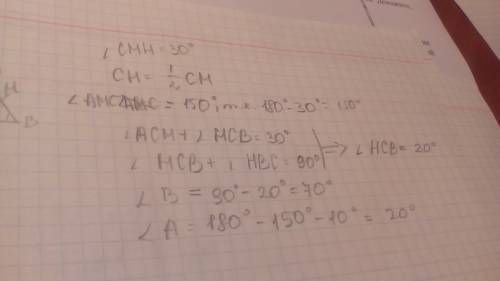 ∠CMH = 30°
CH = 1/2 CM
= 150°, т.к. 180° - 30° = 150°
H
∠ACM + ∠MCB = 30°
∠MCB + ∠HBC = 90° ⇒ ∠HCB = 20°
B
∠B = 90° - 20° = 70°
∠A = 180° - 150° - 10° = 20°